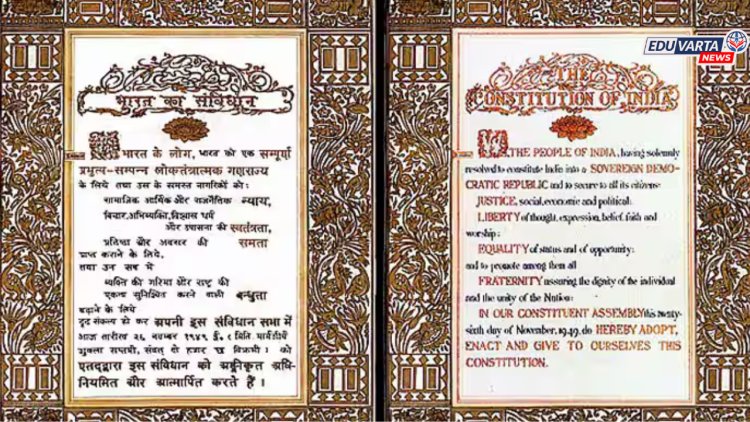 भारत का संविधान
हम भारत के लोग, भारत को एक सम्पूर्ण
प्रभुत्व-सम्पन्न लोकतंत्रात्मक गणराज्य
के लिये तथा उस के समस्त नागरिकों को:
सामाजिक आर्थिक और राजनैतिक न्याय,
विचार,अभिव्यक्ति,विश्वास धर्म
और उपासना की स्वतंत्रता,
प्रतिष्ठा और अवसर की समता
प्राप्त कराने के लिये,
तथा उन सब में
व्यक्ति की गरिमा और राष्ट्र की
एकता सुनिश्चित करने वाली बन्धुता
बढ़ाने के लिये
दृढ़ संकल्प हो कर अपनी इस संविधान सभा में
आज तारीख २६ नवम्बर १९४९ ई. ( मिति मार्गशीर्ष
शुक्ला सप्तमी, संवत् दो हजार छ विक्रमी ) को
एतद्द्वारा इस संविधान को अङ्गीकृत अधि-
नियमित और आत्मार्पित करते हैं ।
EDUVARTA
NEWS
THE
CONSTITUTION OF INDIA
WE, THE PEOPLE OF INDIA, having solemnly
resolved to constitute India into a SOVEREIGN DEMO-
CRATIC REPUBLIC and to secure to all its citizens:
JUSTICE, social, economic and political;
LIBERTY of thought, expression, belief, faith and
worship;
EQUALITY of status and of opportunity;
and to promote among them all
FRATERNITY assuring the dignity of the individual
and the unity of the Nation;
IN OUR CONSTITUENT ASSEMBLY this twenty-
sixth day of November, 1949, do HEREBY ADOPT,
ENACT AND GIVE TO OURSELVES THIS
CONSTITUTION.